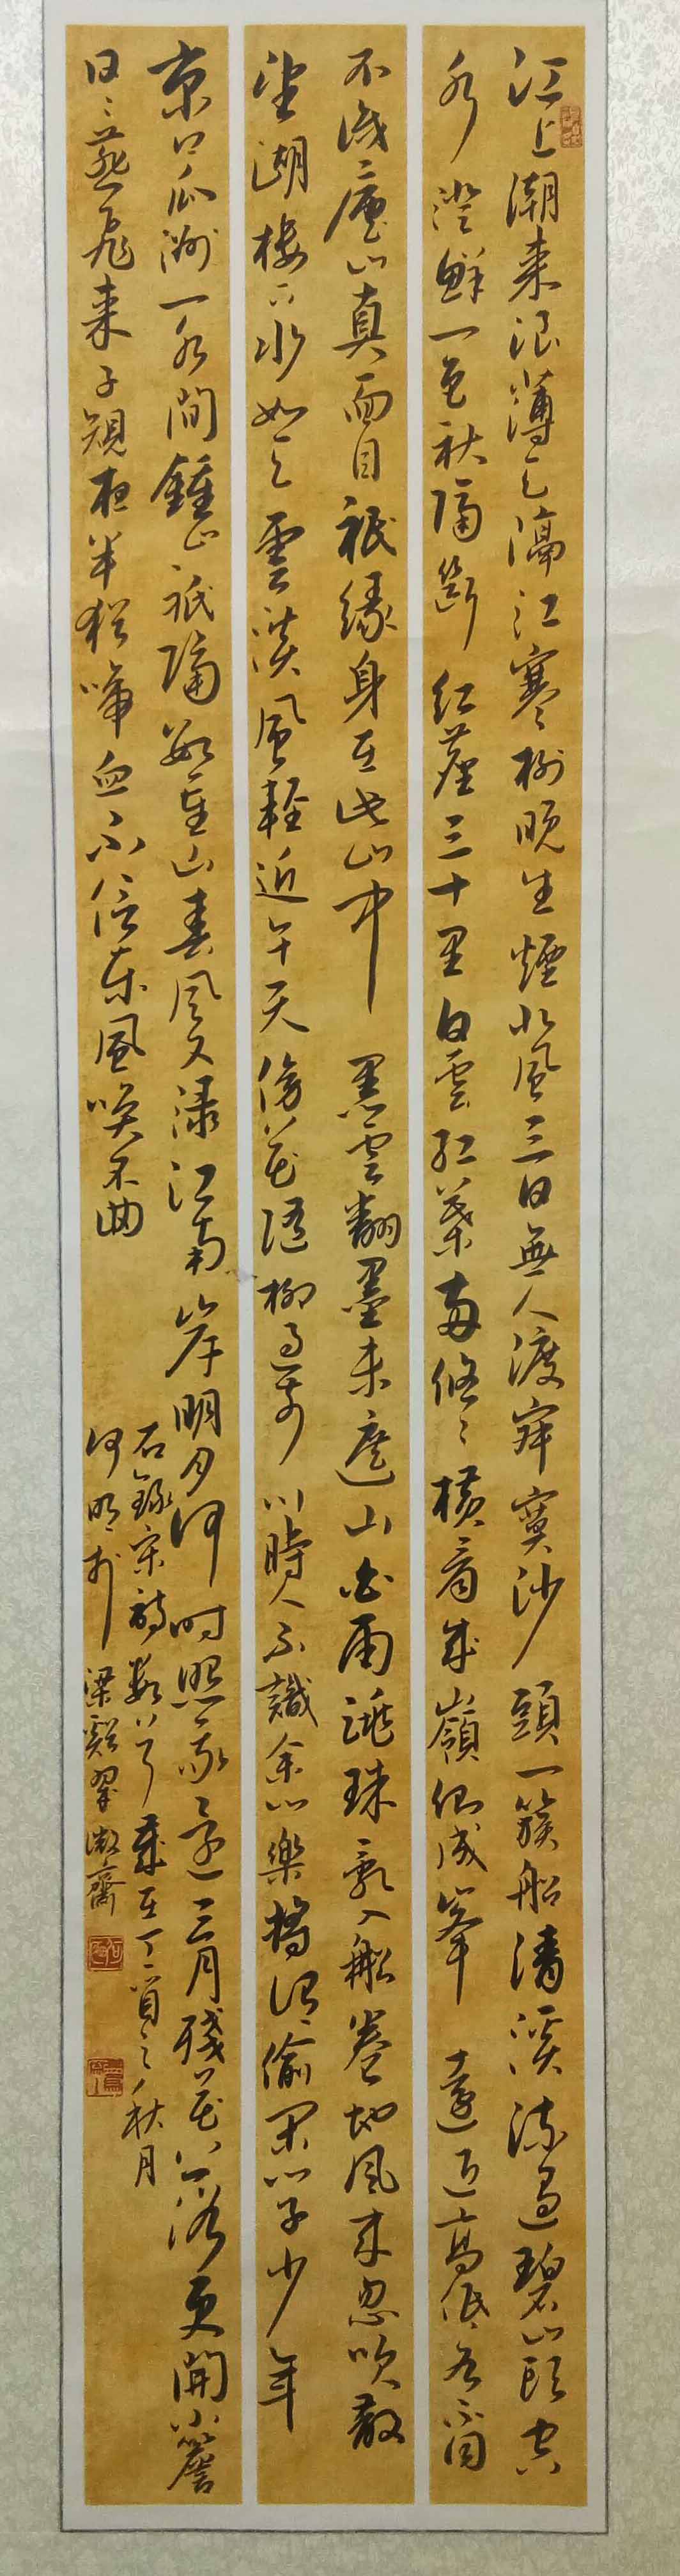 江上潮来浪薄天隔江寒樹晚生煙北風三日無人渡寂寞沙頭一簇船清溪流過碧山頭空
水澄鮮一色秋隔斷紅塵三十里白雲紅葉兩悠〻橫看成嶺側成峯遠近高低各不同
不識廬山真面目祇緣身在此山中黑雲翻墨未遮山白雨跳珠亂入船卷地風來忽吹散
望湖樓下水如天雲淡風輕近午天傍花隨柳過前川時人不識余心樂將謂偷閑學少年
京口瓜洲一水間鍾山祇隔數重山春風又綠江南岸明月何時照我還三月殘花落更開小簷
日〻燕飛來子規夜半猶啼血不信東風喚不回
右錄宋詩數首歲在丁酉之秋月
何明於梁谿翠微齋